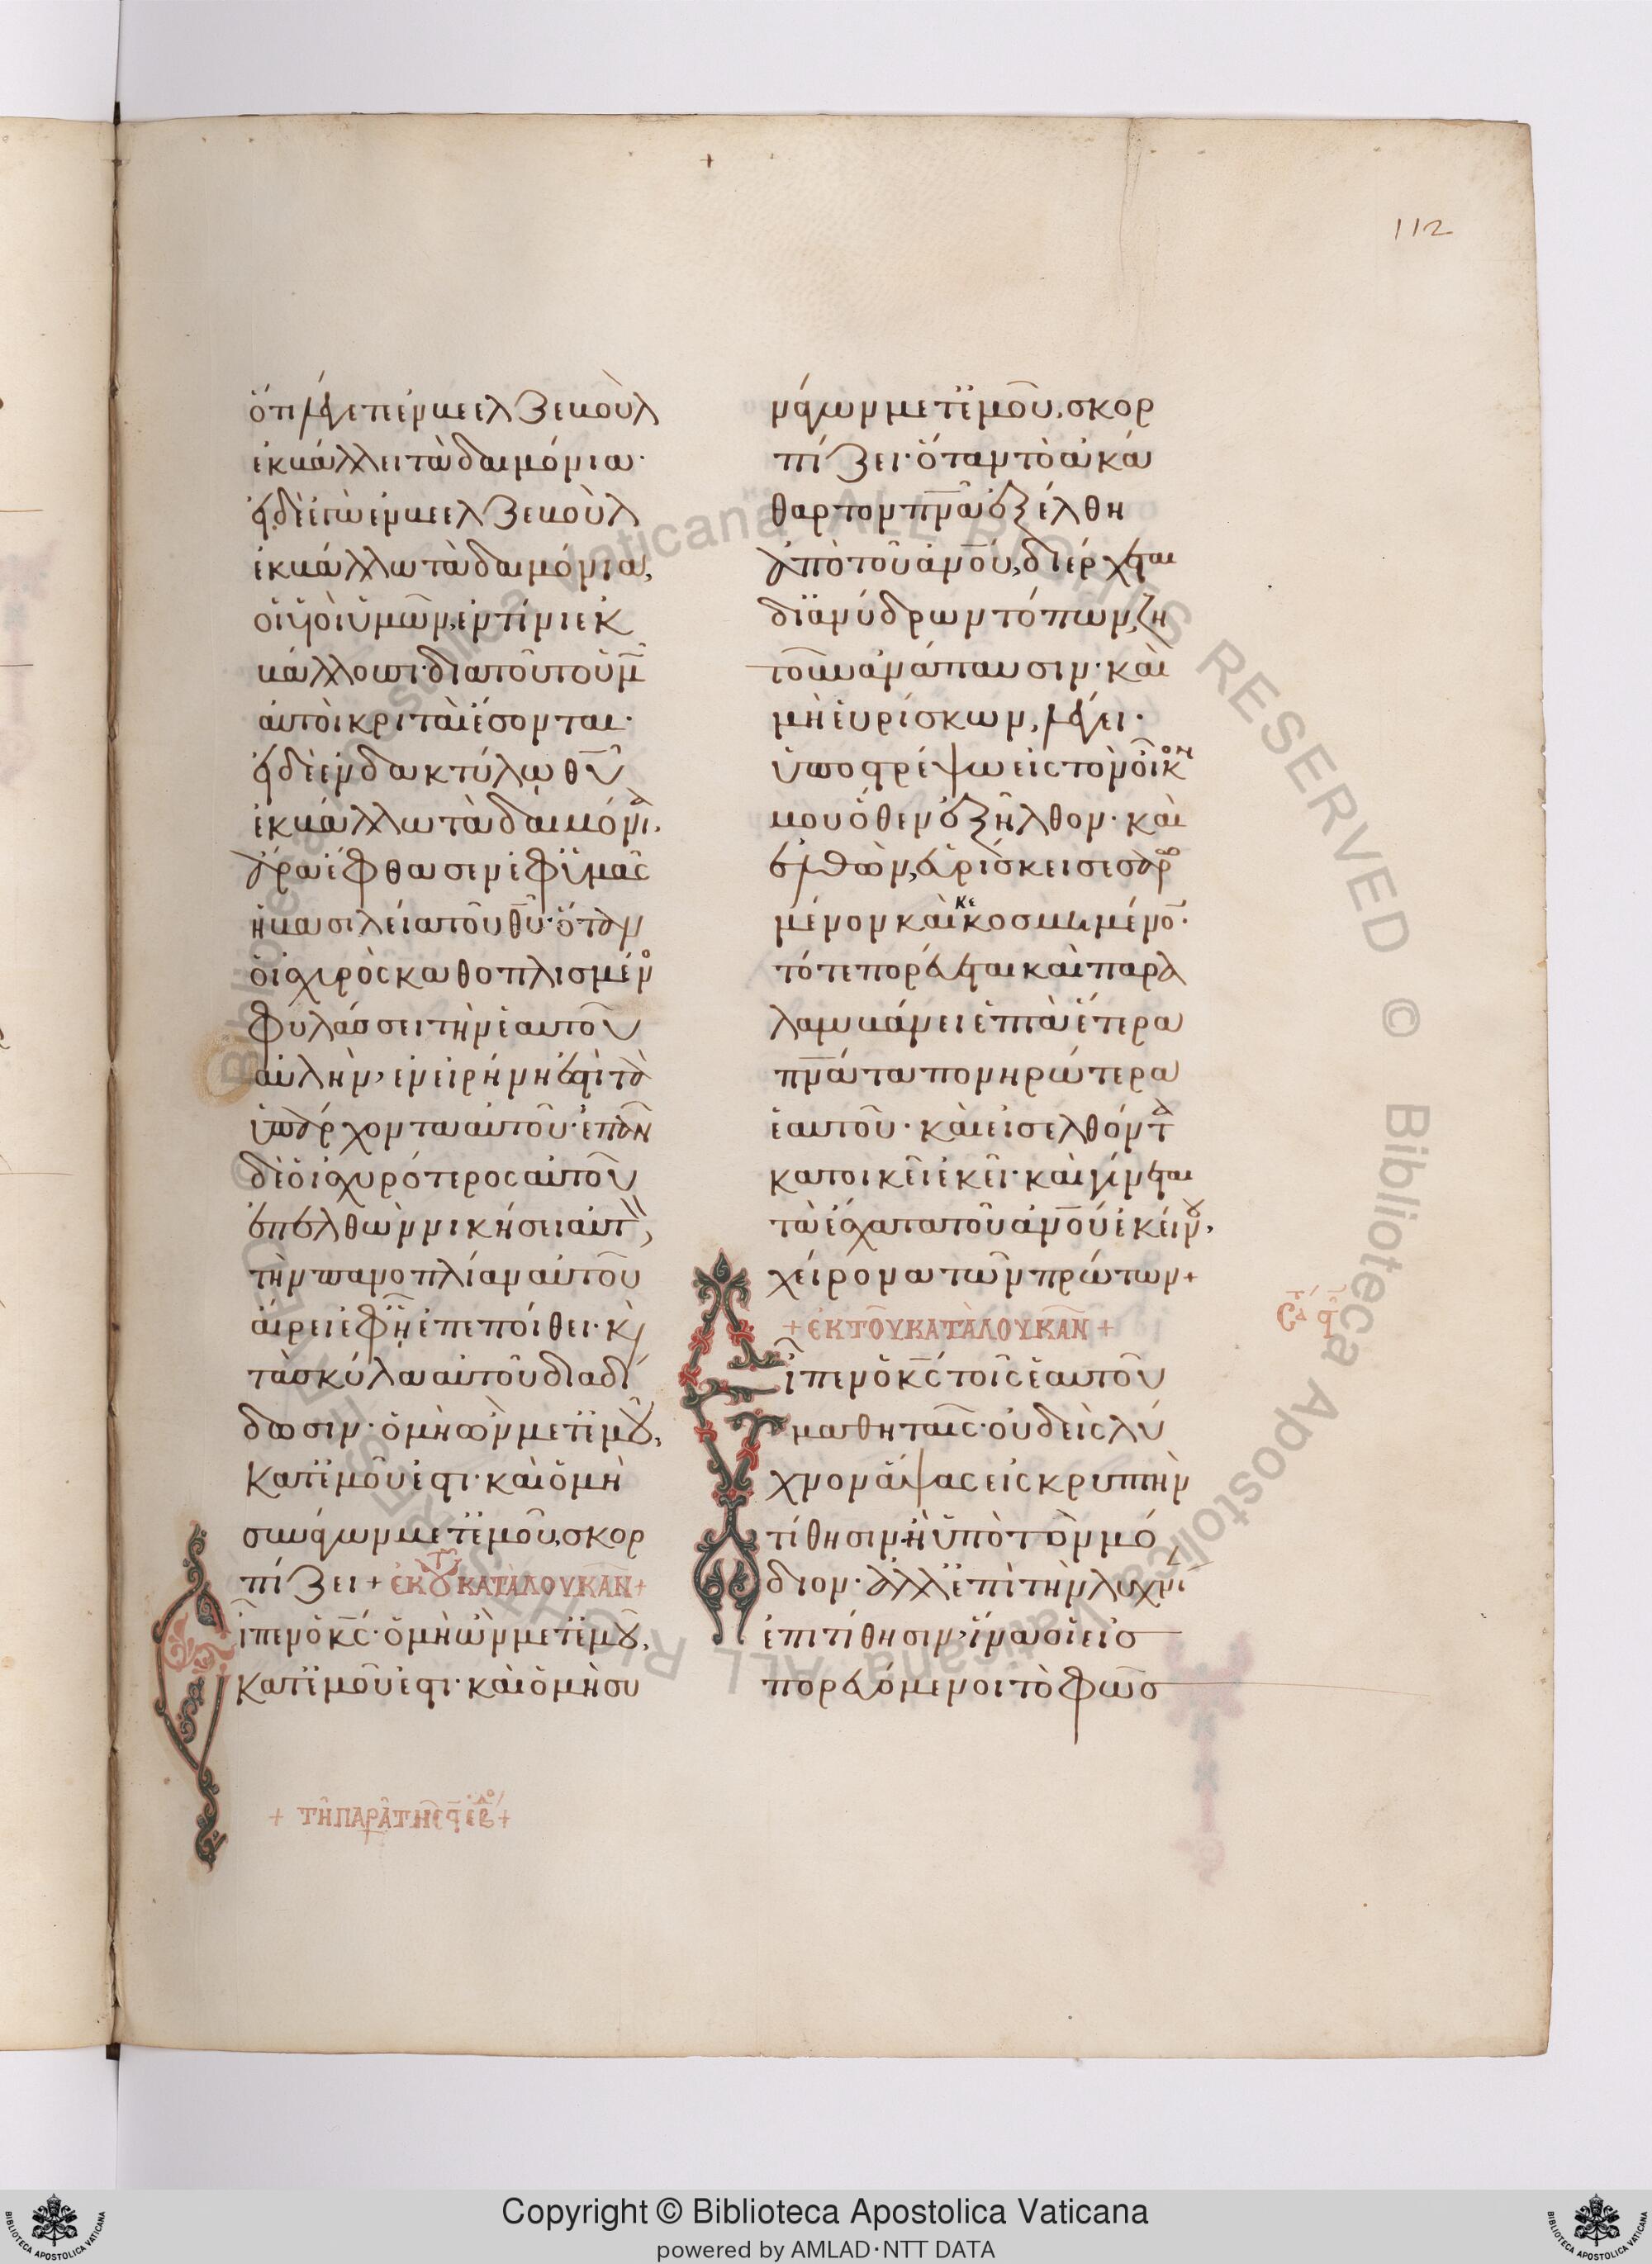 112
ὅτι λέγετε ἐν βεελζεβοὺλ
ἐκβάλλει τὰ δαιμόνια·
εἰ δὲ ἐγὼ ἐν βεελζεβοὺλ
ἐκβάλλω τὰ δαιμόνια,
οἱ υἱοὶ ὑμῶν, ἐν τίνι ἐκ
βάλλουσι· διατοῦτο ὑμ̅
αὐτοὶ κριταὶ ἔσονται·
εἰ δὲ ἐν δακτύλῳ θ̅υ̅
ἐκβάλλω τὰ δαιμόνια,
ἄρα ἔφθασεν ἐφ ὑμᾶς
ἡ βασιλεία τοῦ θ̅υ̅· ὅταν
ὁ ἰσχυρὸς καθοπλισμένο
φυλάσσει τὴν ἑαυτοῦ
αὐλὴν, ἐν εἰρήνη ἐστὶ τὰ
ὑπάρχοντα αὐτοῦ· ἐπὰν
δὲ ὁ ἰσχυρότερος αὐτοῦ
ἐπελθὼν νικήσει αὐτ,
τὴν πανοπλίαν αὐτοῦ
αἴρει ἐφ ῇ ἐπεποίθει· κ
τὰ σκύλα αὐτοῦ διαδί
δωσιν· ὁ μὴ ὢν μετ ἐμοῦ,
κατ ἐμοῦ ἐστι· καὶ ὁ μὴ
συνάγων μετ ἐμοῦ, σκορ
πίζει + ἐκ τοῦ κατὰ λουκᾶν +
ἶπεν ὁ κ̅ς̅· ὁ μὴ ὢν μετ ἐμοῦ,
κατ ἐμοῦ ἐστι· καὶ ὁ μὴ συ
νάγων μετ ἐμοῦ, σκορ
πίζει· ὅταν τὸ ἀκά
θαρτον π̅ν̅α̅ ἐξέλθη
ἀπὸ τοῦ α̅ν̅ο̅υ̅, διέρχεται
δι ἀνύδρων τόπων, ζη
τοῦν ἀνάπαυσιν· καὶ
μὴ εὑρίσκων, λέγει·
ὑποστρέψω εἰς τὸν οἶκον
μου ὅθεν ἐξῆλθον· καὶ
ἐλθὼν, εὑρίσκει σεσαρω
μένον καὶ κε κοσμημένο̅·
τότε πορεύεται καὶ παρα
λαμβάνει ἑπτὰ ἕτερα
π̅ν̅α̅τα πονηρώτερα
ἑαυτοῦ· καὶ εἰσελθόντα
κατοικεῖ ἐκεῖ· καὶ γίνεται
τὰ ἔσχατα τοῦ α̅ν̅ο̅υ̅ ἐκείνου,
χείρονα τῶν πρώτων +
+ ἐκ τοῦ κατὰ λουκᾶν +
εἶπεν ὁ κ̅ς̅ τοῖς ἑαυτοῦ
μαθηταῖς· οὐδεὶς λύ
χνον ἅψας εἰς κρυπτὴν
τίθησιν, ἢ ὑπὸ τὸν μό
διον· ἀλλ ἐπὶ τὴν λυχνί
ἐπιτίθησιν, ἵνα οἱ εἰσ
πορευόμενοι τὸ φῶσ
Copyright © Biblioteca Apostolica Vaticana
powered by AMLAD·NTT DATA